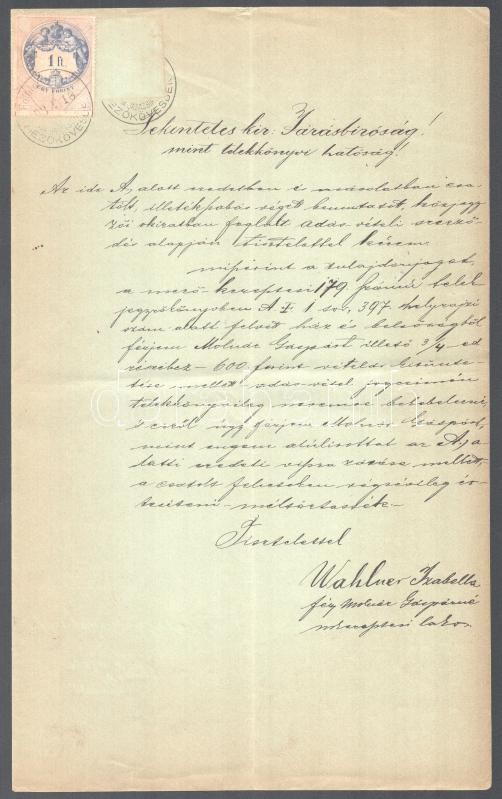 1 ft
EGY FORINT
MEZŐKÖVESDEN
Tekentetes kir: Járásbíróság!
mint telekkönyvi hatóság!
Az ide A, alatt eredetben és másolatban csa
tolt, illetékszabás végett bemutatott, közjegy
zői okiratban foglalt adás-vételi szerző
dés alapján tisztelettel kérem
miszerint a tulajdonjogot,
a mező-keresztesi 179 számú telek
jegyzőkönyvben A I. 1 sor, 397 helyrajzi
szám alatt felvett ház és belsőségből
férjem Molnár Gáspárt illető 3/4-ed
részéhez - 600 forint vételár kitünte
tése mellett adás-vétel jogczimén
telekkönyvileg nevemre bekebelezni,
s erről úgy férjem Molnár Gáspárt,
mint engem alúlirottat az A, a
latti eredeti vissza zárása mellett,
a csatolt felzeteken végzésileg ér-
tesiteni - méltóztassék. -
Tisztelettel
Wahlner Izabella
férj. Molnár Gáspárné
mkeresztesi lakos